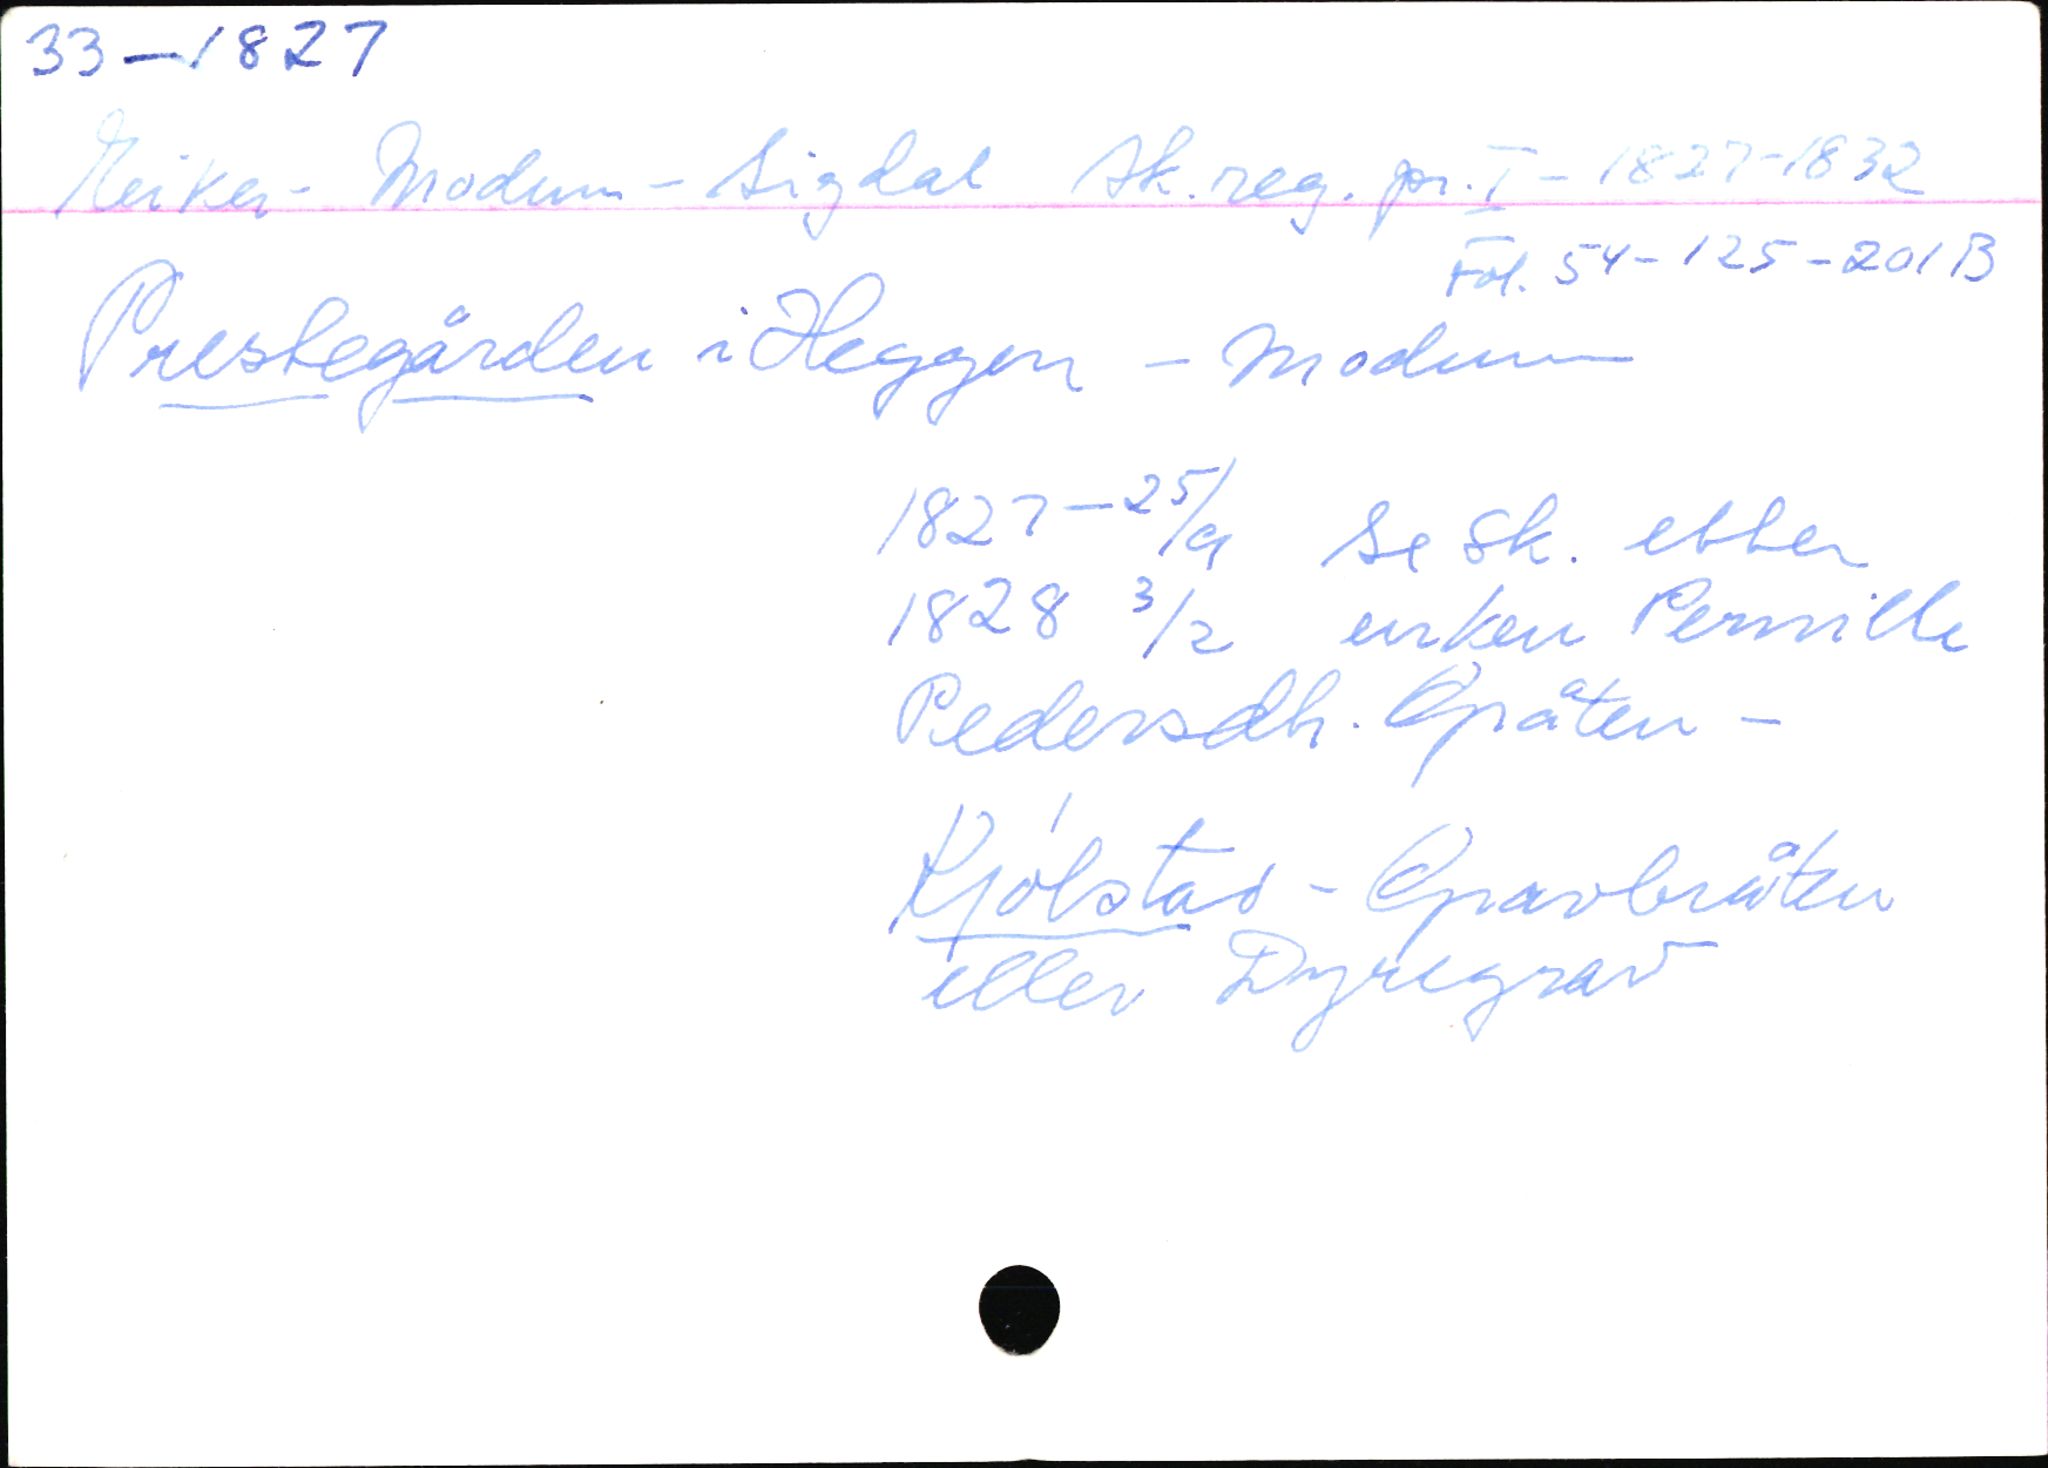 33-1827
Eiker - Modum - Sigdal sk.reg.pr. I - 1827-1832
Fol. 54-125-201B
Prestegården i Heggen - Modum
1827 - 25/9 Se sk. etter
1828 3/2 enken Pernille
Pedersdh.
Kjølstad - Gravbråten
eller Dyregrav